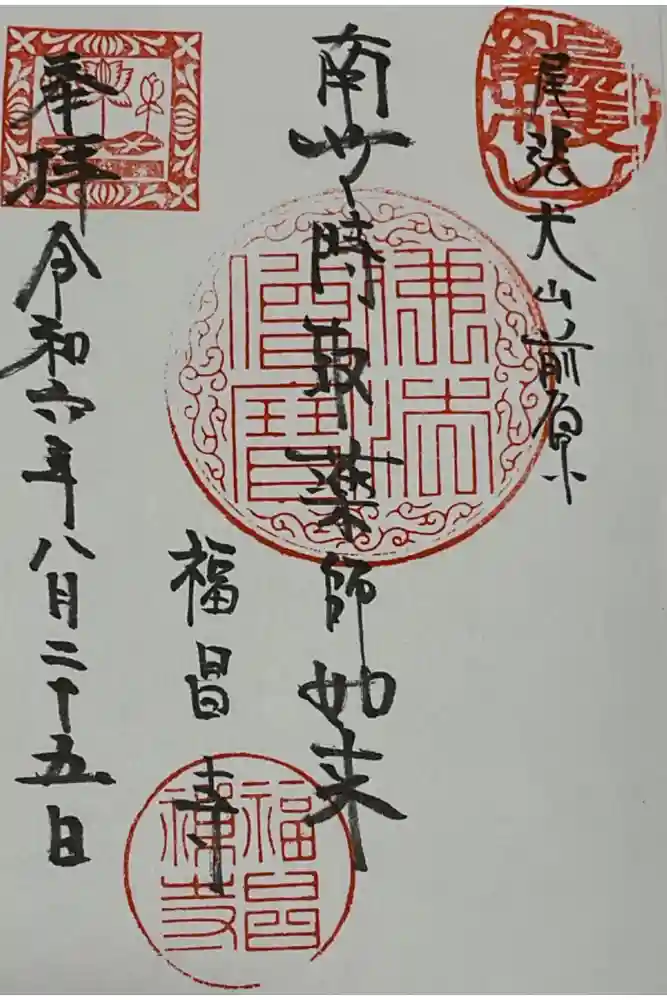 尾張犬山前原
南無時薬師如来
福昌寺
奉拝 令和六年八月二十五日
佛法僧寶
福昌禅寺